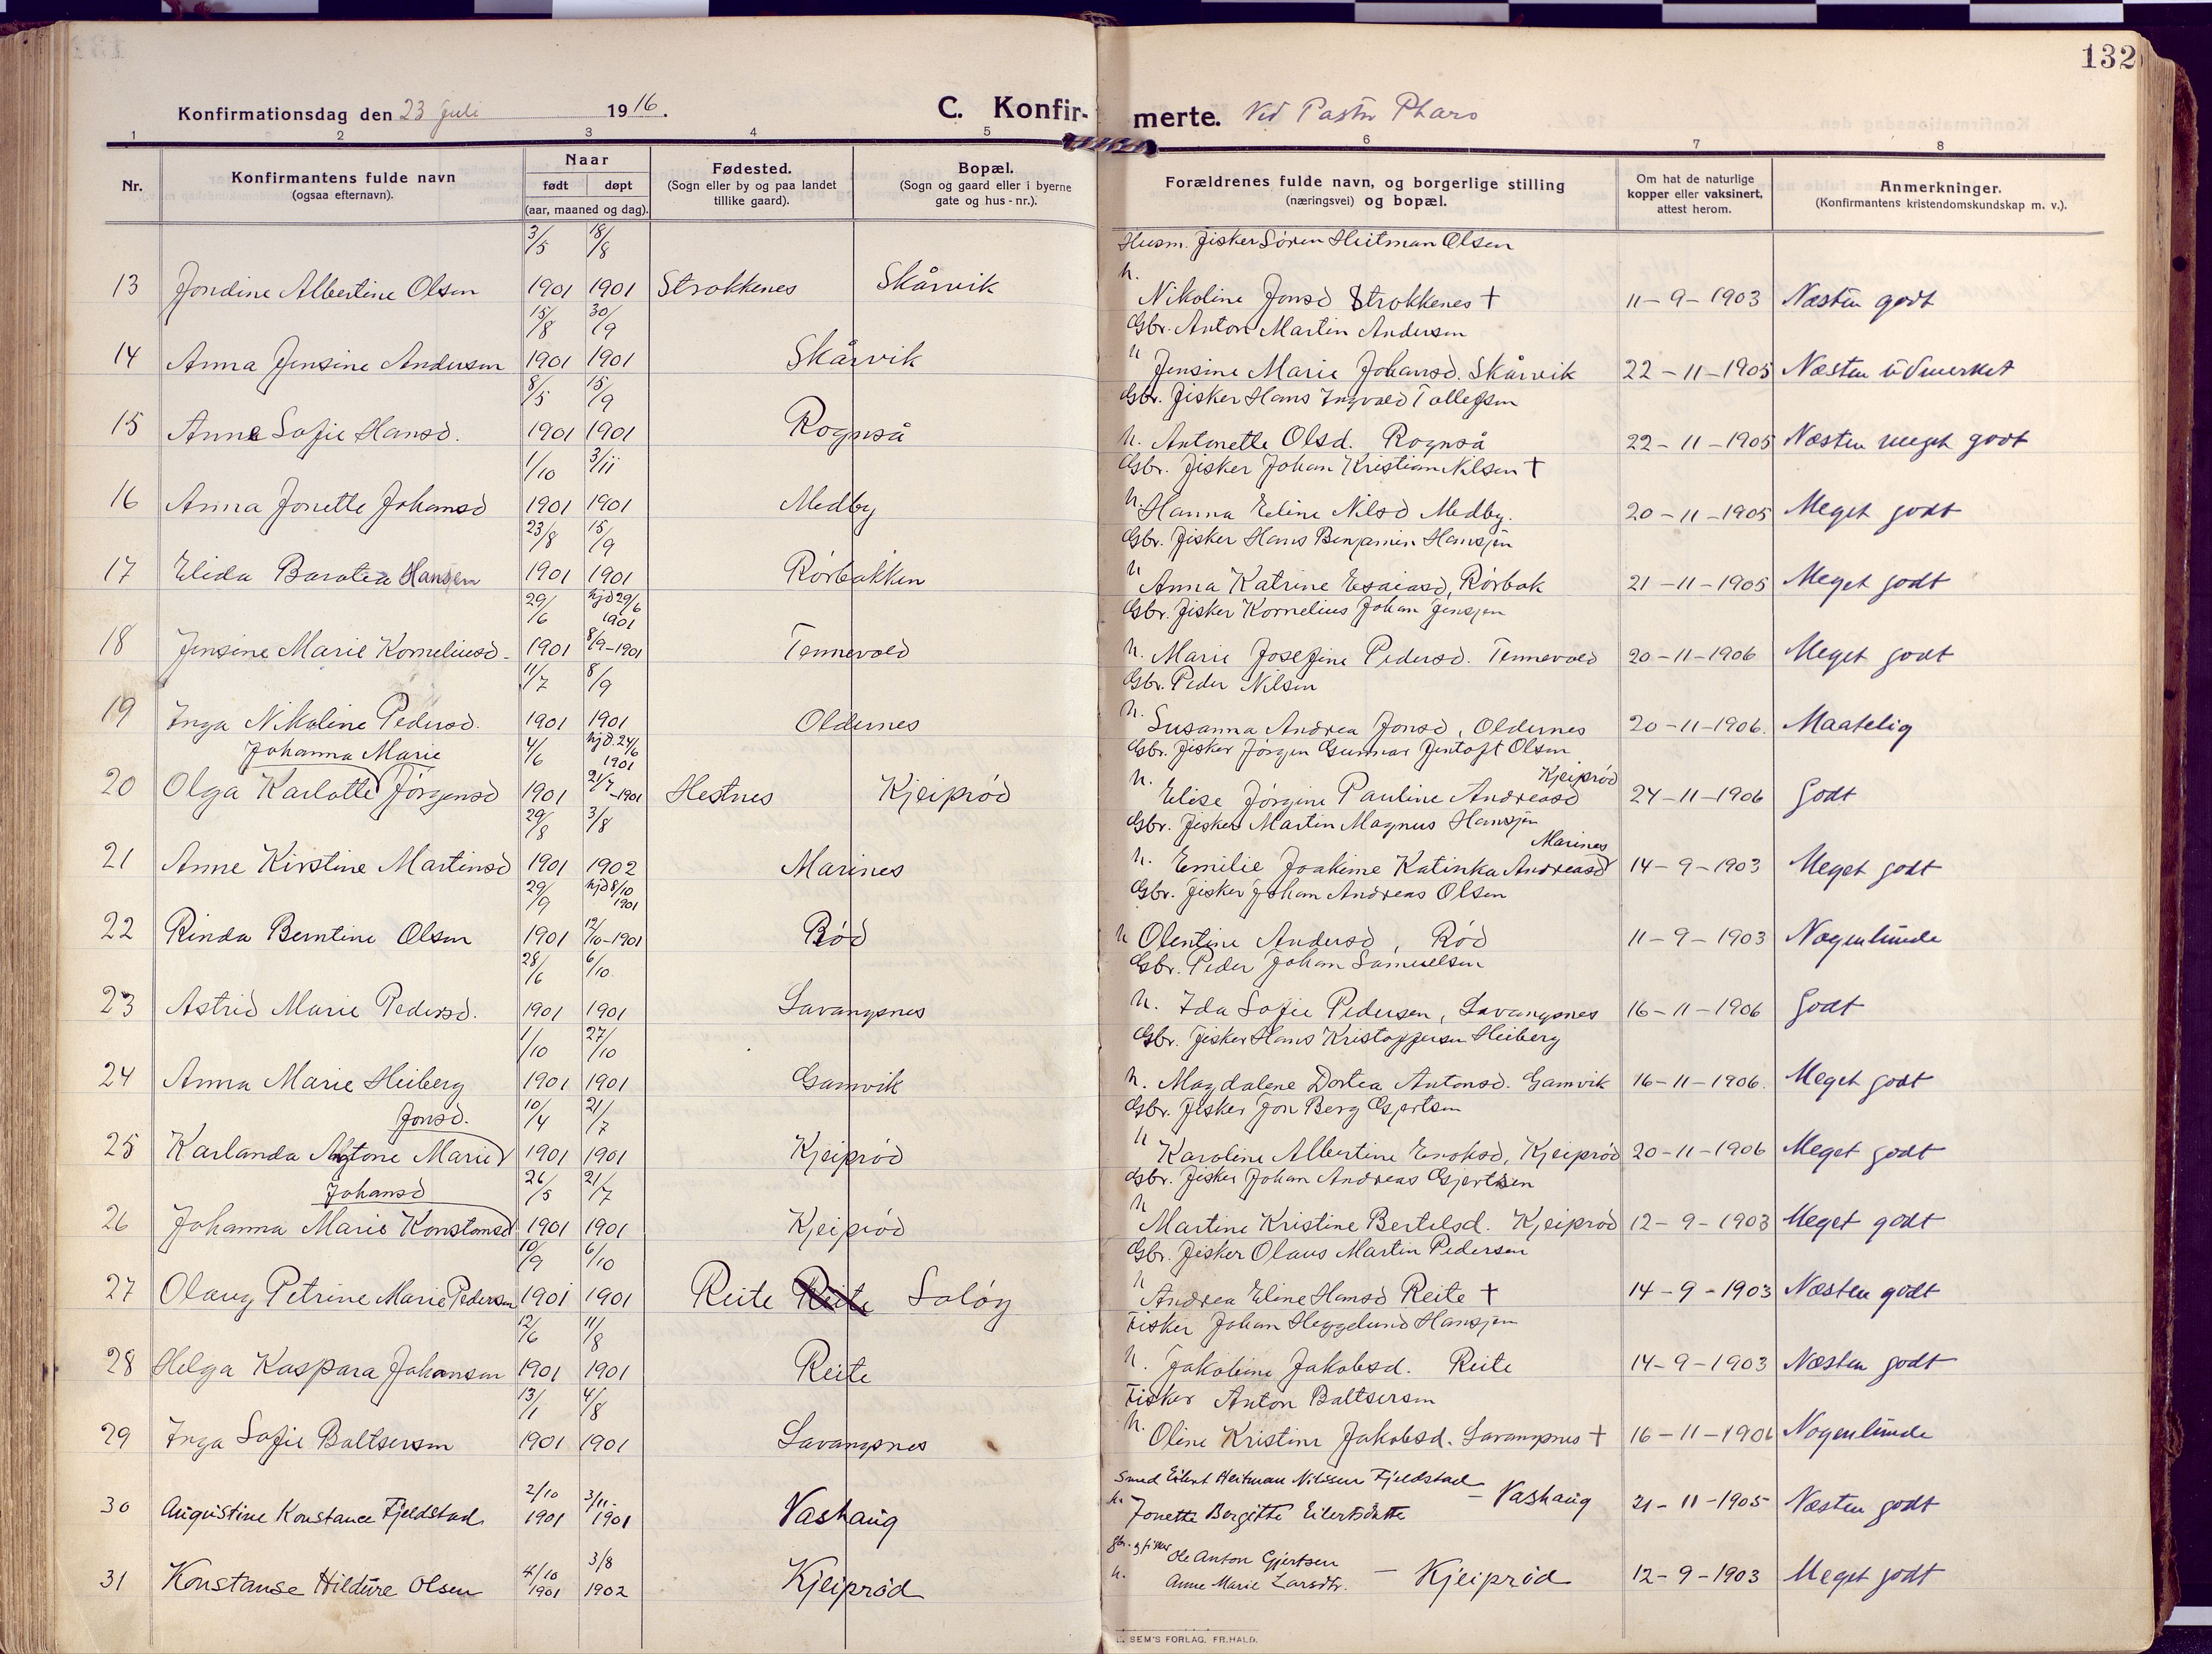 132
Konfirmationsdag den 23 Juli 1916.
C. Konfirmerte. Ved Pastor Pharo
1 2 3 4 5 6 7 8
Nr.
Konfirmantens fulde navn
(ogsaa efternavn).
Naar
født døpt
(aar, maaned og dag).
Fødested.
(Sogn eller by og paa landet
tillike gaard).
Bopæl.
(Sogn og gaard eller i byerne
gate og hus-nr.).
Forældrenes fulde navn, og borgerlige stilling
(næringsvei) og bopæl.
Om hat de naturlige
kopper eller vaksinert,
attest herom.
Anmerkninger.
(Konfirmantens kristendomskundskap m. v.).
3/5 18/8 Husm. fisker Søren Heitman Olsen
13 Jondine Albertine Olsen 1901 1901 Strokkenes Skårvik h. Nikoline Jonsd Strokkenes † 11-9-1903 Næsten godt
15/8 30/9 Gbr. Anton Martin Andersen
14 Anna Jensine Andersen 1901 1901 Skårvik h Jensine Marie Johansd. Skårvik 22-11-1905 Næsten udmerket
8/5 15/9 Gbr. fisker Hans Ingvald Tollefsen
15 Anna Sofie Hansd. 1901 1901 Rognså h. Antonette Olsd. Rognså 22-11-1905 Næsten meget godt
1/10 3/11 Gbr. fisker Johan Kristian Nilsen †
16 Anna Jonette Johansd 1901 1901 Medby h. Hanna Eline Nilsd Medby. 20-11-1905 Meget godt
23/8 15/9 Gbr. fisker Hans Benjamin Hansen
17 Elida Barotea Hansen 1901 1901 Rørbakken h Anna Katrine Esaiasd, Rørbak 21-11-1905 Meget godt
29/6 hjd 29/6 1901 Gbr. fisker Kornelius Johan Jensen
18 Jensine Marie Korneliusd. 1901 8/9-1901 Tennevold h. Marie Josefine Pedersd. Tennevold 20-11-1906 Meget godt
11/7 8/9 Gbr. Peder Nilsen
19 Inga Nikoline Pedersd. 1901 1901 Oldernes h. Susanna Andrea Jonsd, Oldernes 20-11-1906. Maatelig
Johanna Marie 4/6 hjd. 24/6 1901 Gbr. fisker Jørgen Gunnar Jentoft Olsen
20 Olga Karlotte Jørgensd 1901 21/7-1901 Hestnes Kjeiprød h. Elise Jørgine Pauline Andreasd Kjeiprød 24-11-1906 Godt
29/8 3/8 Gbr. fisker Martin Magnus Hansen
21 Anne Kirstine Martinsd 1901 1902 Marines h. Emilie Joakime Katinka Andreasd Marines 14-9-1903 Meget godt
29/9 hjd 8/10 1901 Gbr. fisker Johan Andreas Olsen
22 Rinda Berntine Olsen 1901 12/10-1901 Rød h Olentine Andersd, Rød 11-9-1903 Nogenlunde
28/6 6/10. Gbr. Peder Johan Samuelsen
23 Astrid Marie Pedersd. 1901 1901 Lavangsnes h. Ida Sofie Pedersen, Lavangsnes 16-11-1906 Godt
1/10 27/10 Gbr. fisker Hans Kristoffersen Heiberg
24 Anna Marie Heiberg 1901 1901 Gamvik h. Magdalene Dortea Antonsd. Gamvik 16-11-1906. Meget godt
Jonsd. 10/4 21/7 Gbr. fisker Jon Berg Gjertsen
25 Karlanda Antone Marie 1901 1901 Kjeiprød h Karoline Albertine Enoksd, Kjeiprød 20-11-1906 Meget godt
Johansd 26/5 21/7 Gbr. fisker Johan Andreas Gjertsen
26 Johanna Marie Konstansd 1901 1901 Kjeiprød h Martine Kristine Bertelsd. Kjeiprød 12-9-1903 Meget godt
10/9 6/10 Gbr. fisker Olaus Martin Pedersen
27 Olaug Petrine Marie Pedersen 1901 1901 Reite Reite Soløy h Andrea Eline Hansd Reite † 14-9-1903 Næsten godt
12/6 11/8 Fisker Johan Heggelund Hansen
28 Helga Kaspara Johansen 1901 1901 Reite h. Jakobine Jakobsd. Reite 14-9-1903 Næsten godt
13/1 4/8 Fisker Anton Baltsersen
29 Inga Sofie Baltsersen 1901 1901 Lavangsnes h. Oline Kristine Jakobsd. Lavangsnes † 16-11-1906 Nogenlunde
2/10 3/11- Smed Eilert Heitman Nilssen Fjeldstad
30 Augustine Konstance Fjeldstad 1901 1901 Vashaug h. Jonette Bergitte Eilertsdatte - Vashaug 21-11-1905 Næsten godt
4/10 3/8 gbr. og fisker Ole Anton Gjertsen
31 Konstanse Hildure Olsen 1901 1902 Kjeiprød h. Anne Marie Larsdtr. - Kjeiprød 12-9-1903 Meget godt
SEM'S FORLAG, FR.HALD.